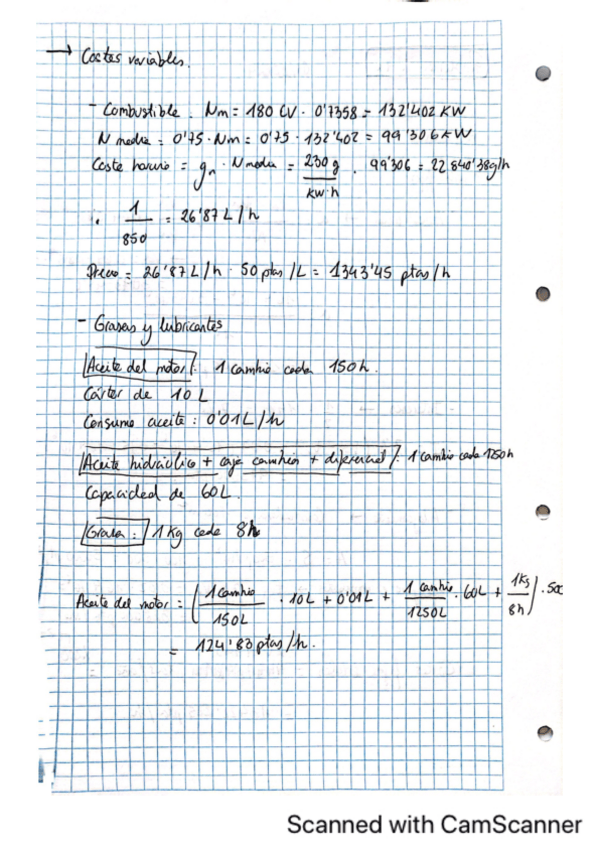 → Costes variables.
- Combustible. Nm = 180 CV · 0'7358 = 132'402 KW
N media = 0'75 · Nm = 0'75 · 132'402 = 99'306 KW
Coste horario = gn · N media = 230 g / kw·h · 99'306 = 22.840'38 g/h
· 1 / 850 = 26'87 L/h
Precio = 26'87 L/h · 50 ptas/L = 1343'45 ptas/h
- Grasas y lubricantes
Aceite del motor: 1 cambio cada 150h.
Cárter de 10 L
Consumo aceite: 0'01 L/h
Aceite hidráulico + caja cambios + diferencial: 1 cambio cada 1250h
Capacidad de 60L.
Grasa: 1 Kg cada 8h
Aceite del motor = ( 1 cambio / 150L · 10L + 0'01L + 1 cambio / 1250L · 60L + 1Kg / 8h ) · 500
= 124'83 ptas/h.
Scanned with CamScanner